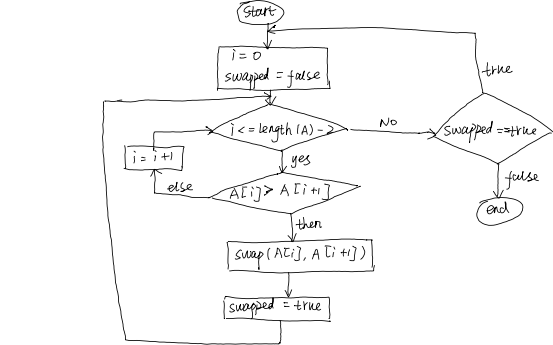 Start
i = 0
swapped = false
i <= length(A) - 2
No
swapped == true
true
false
end
yes
i = i + 1
A[i] > A[i+1]
else
then
swap(A[i], A[i+1])
swapped = true